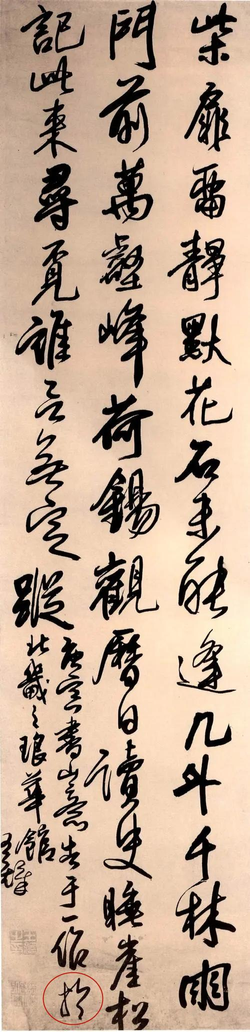 柴扉留靜默花石未能逢几外千林雨
門前萬壑峰荷錫觀曆日讀史睡崖松
記此來尋覓誰言無定蹤
庚寅書山意于一於
北畿之琅華館王鐸